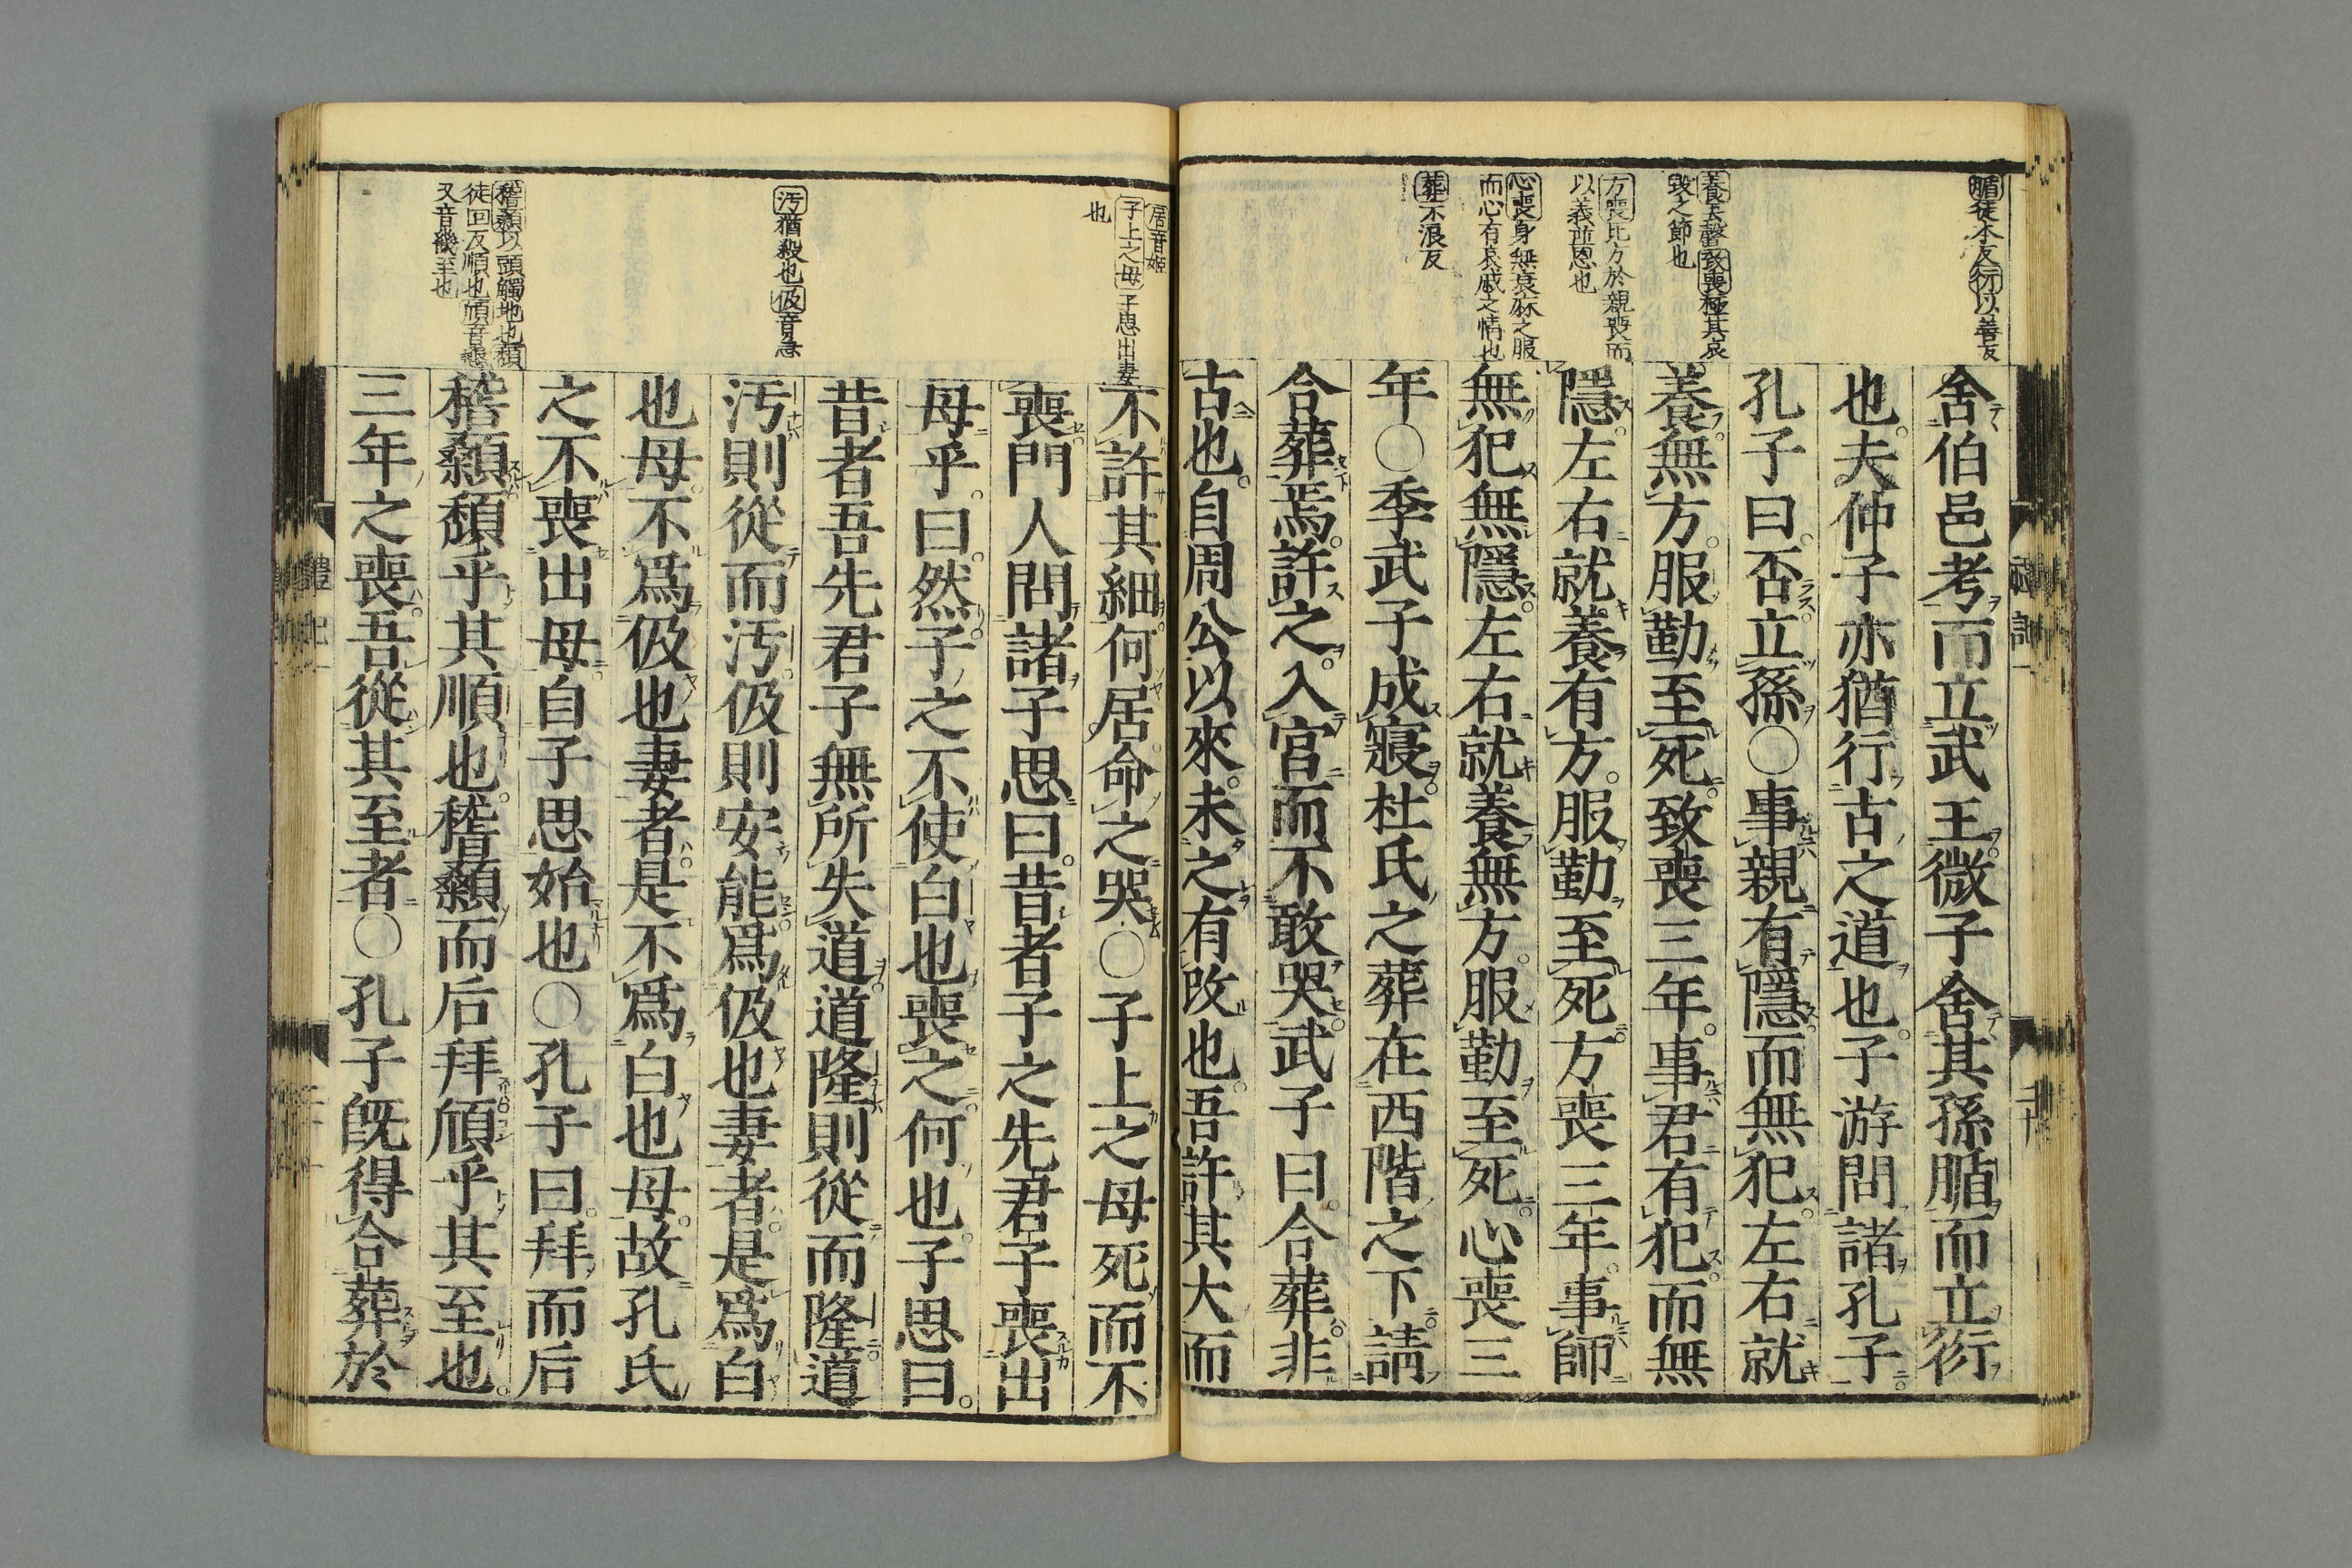 腯徒本反衍以善反
養去聲致喪極其哀
毀之節也
方喪比方於親喪而
以義並恩也
心喪身無衰麻之服
而心有哀戚之情也
葬才浪反
舍伯邑考而立武王微子舍其孫腯而立衍
也夫仲子亦猶行古之道也子游問諸孔子
孔子曰否立孫〇事親有隱而無犯左右就
養無方服勤至死致喪三年事君有犯而無
隱左右就養有方服勤至死方喪三年事師
無犯無隱左右就養無方服勤至死心喪三
年〇季武子成寢杜氏之葬在西階之下請
合葬焉許之入宮而不敢哭武子曰合葬非
古也自周公以來未之有改也吾許其大而
居音姬
子上之母子思出妻
也
汚猶殺也伋音急
稽顙以頭觸地也頽
徒回反順也頎音懇
又音畿至也
不許其細何居命之哭〇子上之母死而不
喪門人問諸子思曰昔者子之先君子喪出
母乎曰然子之不使白也喪之何也子思曰
昔者吾先君子無所失道道隆則從而隆道
汚則從而汚伋則安能爲伋也妻者是爲白
也母不爲伋也妻者是不爲白也母故孔氏
之不喪出母自子思始也〇孔子曰拜而后
稽顙頽乎其順也稽顙而后拜頎乎其至也
三年之喪吾從其至者〇孔子既得合葬於
禮記